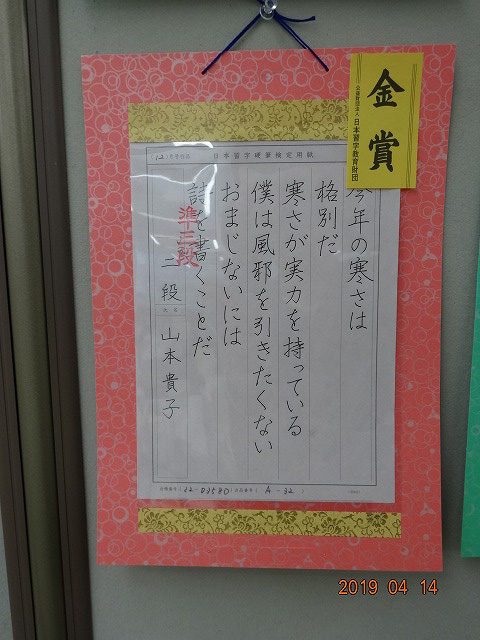 金賞
公益財団法人 日本習字教育財団
(12)月号作品 日本習字硬筆検定用紙
今年の寒さは
格別だ
寒さが実力を持っている
僕は風邪を引きたくない
おまじないには
詩を書くことだ
準三段
二段
氏名
山本貴子
A-32
2019 04 14